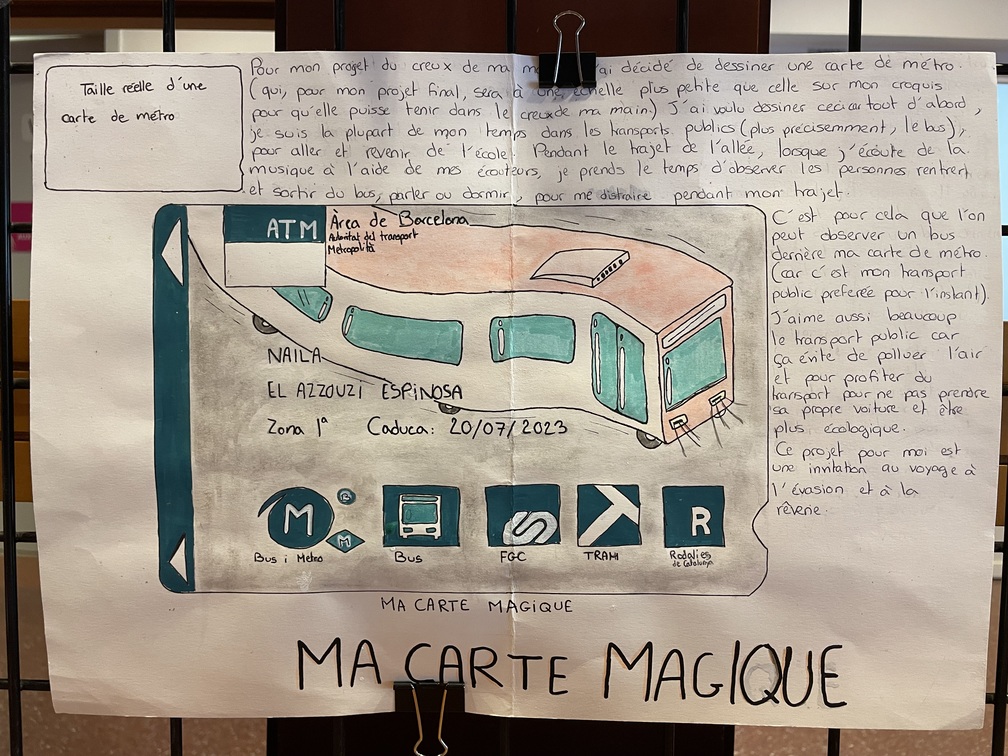 Taille réelle d'une
carte de métro
Pour mon projet du creux de ma ai décidé de dessiner une carte de métro.
(qui, pour mon projet final, sera à une échelle plus petite que celle sur mon croquis
pour qu'elle puisse tenir dans le creux de ma main) J'ai voulu dessiner ceci car tout d'abord,
je suis la plupart de mon temps dans les transports publics (plus précisemment, le bus),
pour aller et revenir de l'école. Pendant le trajet de l'allée, lorsque j'écoute de la
musique à l'aide de mes écouteurs, je prends le temps d'observer les personnes rentrer
et sortir du bus, parler ou dormir, pour me distraire pendant mon trajet.
C'est pour cela que l'on
peut observer un bus
derrière ma carte de métro.
(car c'est mon transport
public preferée pour l'instant).
J'aime aussi beaucoup
le transport public car
ça évite de polluer l'air
et pour profiter du
transport pour ne pas prendre
sa propre voiture et être
plus écologique.
Ce projet pour moi est
une invitation au voyage à
l'évasion et à la
rêverie.
ATM
Àrea de Barcelona
Autoritat del transport
Metropolità
NAILA
EL AZZOUZI ESPINOSA
Zona 1ª Caduca: 20/07/2023
M
M
R
Bus i Metro
Bus
FGC
TRAM
Rodalies
de Catalunya
MA CARTE MAGIQUE
MA CARTE MAGIQUE